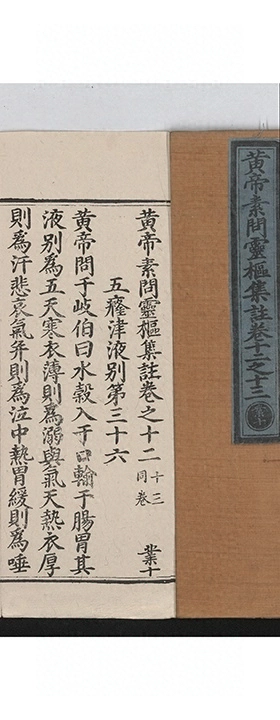 黃帝素問靈樞集註卷十二之十三
黃帝素問靈樞集註卷之十二 十三同卷 業十
五癃津液別第三十六
黃帝問于岐伯曰水穀入于口輸于腸胃其
液別為五天寒衣薄則為溺與氣天熱衣厚
則為汗悲哀氣并則為泣中熱胃緩則為唾